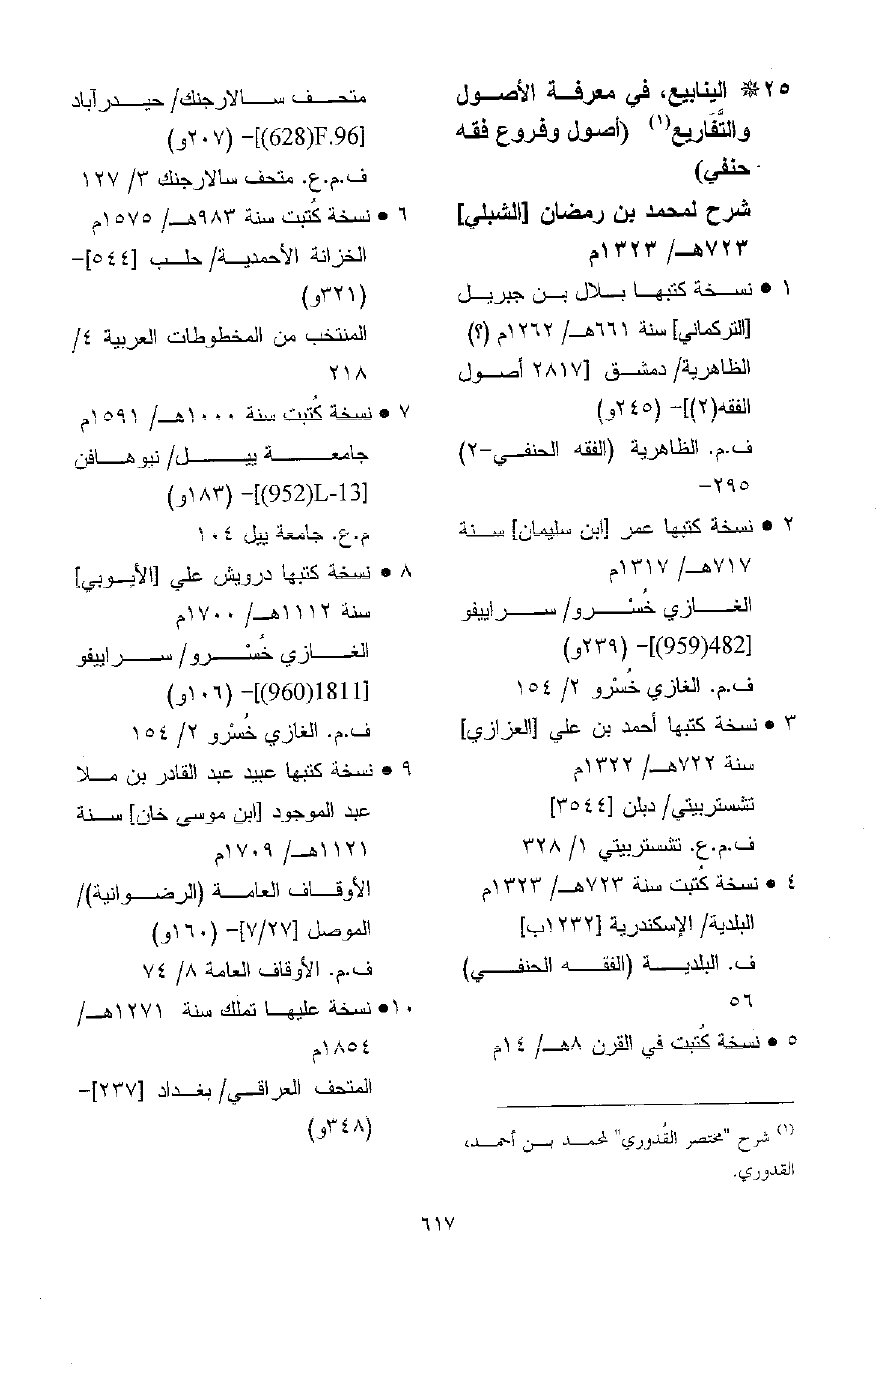 ٢٥ * الينابيع، في معرفة الأصـول
والتَّفَاريع(١) (أصول وفروع فقه
حنفي)
شرح لمحمد بن رمضان [الشبلي]
٧٢٣هـ/ ١٣٢٣م
١ • نسـخة كتبهـا بـلال بـن جبريـل
[التركماني] سنة ٦٦١هـ/ ١٢٦٢م (؟)
الظاهرية/ دمشـق [٢٨١٧ أصـول
الفقه(٢)]- (٢٤٥و)
ف.م. الظاهرية (الفقه الحنفـي-٢)
٢٩٥-
٢ • نسخة كتبها عمر [ابن سليمان] سـنة
٧١٧هـ/ ١٣١٧م
الغـازي خُسْـرو/ سـراييفو
[482(959)]- (٢٣٩و)
ف.م. الغازي خُسْرو ٢/ ١٥٤
٣ • نسخة كتبها أحمد بن علي [العزازي]
سنة ٧٢٢هـ/ ١٣٢٢م
تشستربيتي/ دبلن [٣٥٤٤]
ف.م.ع. تشستربيتي ١/ ٣٢٨
٤ • نسخة كُتبت سنة ٧٢٣هـ/ ١٣٢٣م
البلدية/ الإسكندرية [١٢٣٢ب]
ف. البلديـة (الفقـه الحنفـي)
٥٦
٥ • نسخة كُتبت في القرن ٨هـ/ ١٤م
متحـف سـالارجنك/ حيـدرآباد
[F.96(628)]- (٢٠٧و)
ف.م.ع. متحف سالارجنك ٣/ ١٢٧
٦ • نسخة كُتبت سنة ٩٨٣هـ/ ١٥٧٥م
الخزانة الأحمديـة/ حلـب [٥٤٤]-
(٣٢١و)
المنتخب من المخطوطات العربية ٤/
٢١٨
٧ • نسخة كُتبت سنة ١٠٠٠هـ/ ١٥٩١م
جامعـة ييـل/ نيوهـافن
[L-13(952)]- (١٨٣و)
م.ع. جامعة ييل ١٠٤
٨ • نسخة كتبها درويش علي [الأيـوبي]
سنة ١١١٢هـ/ ١٧٠٠م
الغـازي خُسْـرو/ سـراييفو
[1811(960)]- (١٠٦و)
ف.م. الغازي خُسْرو ٢/ ١٥٤
٩ • نسخة كتبها عبيد عبد القادر بن مـلا
عبد الموجود [ابن موسى خان] سـنة
١١٢١هـ/ ١٧٠٩م
الأوقـاف العامـة (الرضـوانية)/
الموصل [٧/٢٧]- (١٦٠و)
ف.م. الأوقاف العامة ٨/ ٧٤
١٠• نسخة عليهـا تملك سنة ١٢٧١هـ/
١٨٥٤م
المتحف العراقـي/ بغـداد [٢٣٧]-
(٣٤٨و)
(١) شرح "مختصر القُدوري" لمحمـد بـن أحمـد،
القدوري.
٦١٧